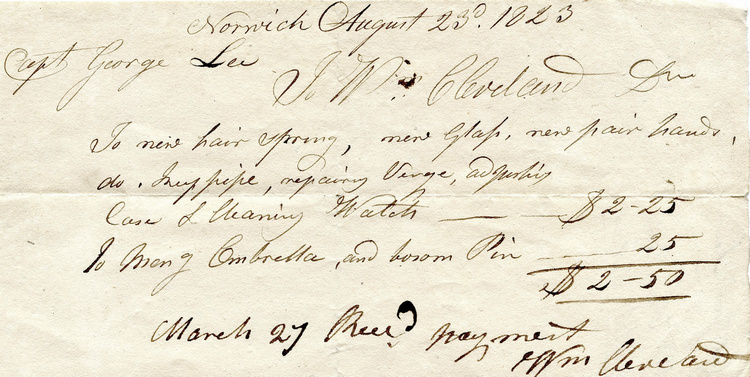 Norwich August 23d. 1823
Capt George Lee
To Wm. Cleveland Dr
To new hair spring, new Glass, new pair hands,
do. Keypipe, repairing Verge, adjusting
Case & Cleaning Watch — — $2-25
To Meng Ombrella, and bosom Pin — 25
$2-50
March 27 Recd payment
Wm Cleveland